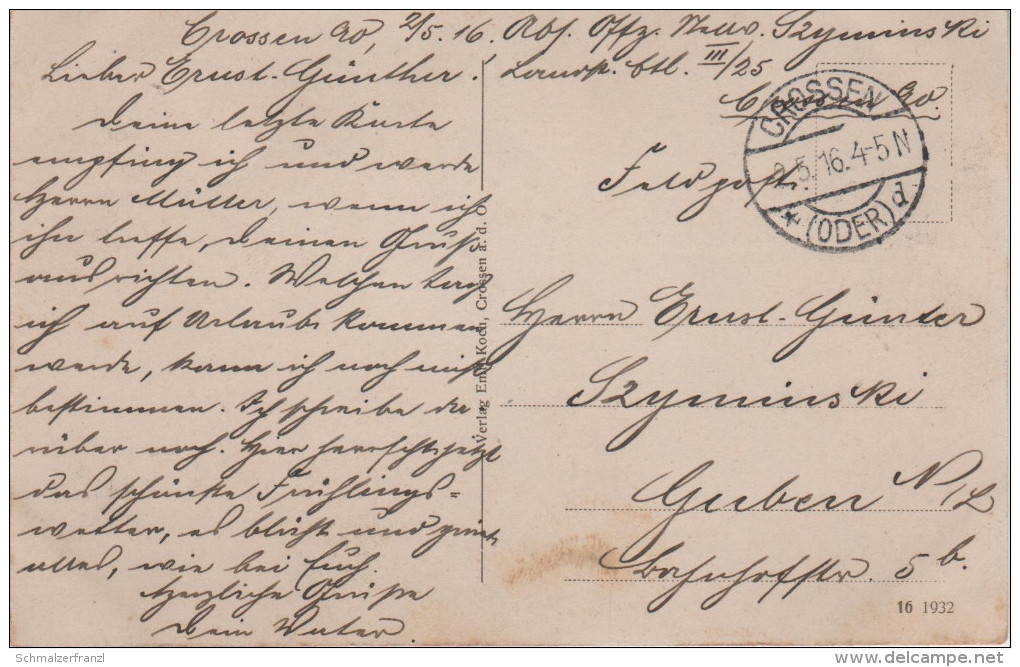 Crossen a/O, 2/5.16.
Lieber Ernst-Günther!
Deine letzte Karte
empfing ich und werde
Herrn Müller, wenn ich
ihn treffe, Deinen Gruß
ausrichten. Welchen Tag
ich auf Urlaub kommen
werde, kann ich noch nicht
bestimmen. Ich schreibe da
rüber noch. Hier herrscht jetzt
das schönste Frühlings=
wetter, es blüht und grünt
alles, wie bei Euch.
Herzliche Grüße
Dein Vater.
Verlag Emil Koch, Crossen a. d. O.
Abs. Offz. Szyminski
Landst. Btl. III/25
Crossen a/O.
CROSSEN
2.5.16.4-5N
* (ODER) d
Feldpost.
Herrn Ernst-Günter
Szyminski
Guben N/L
Bahnhofstr. 5b.
16 1932
Schmalzerfranzl
www.delcampe.net